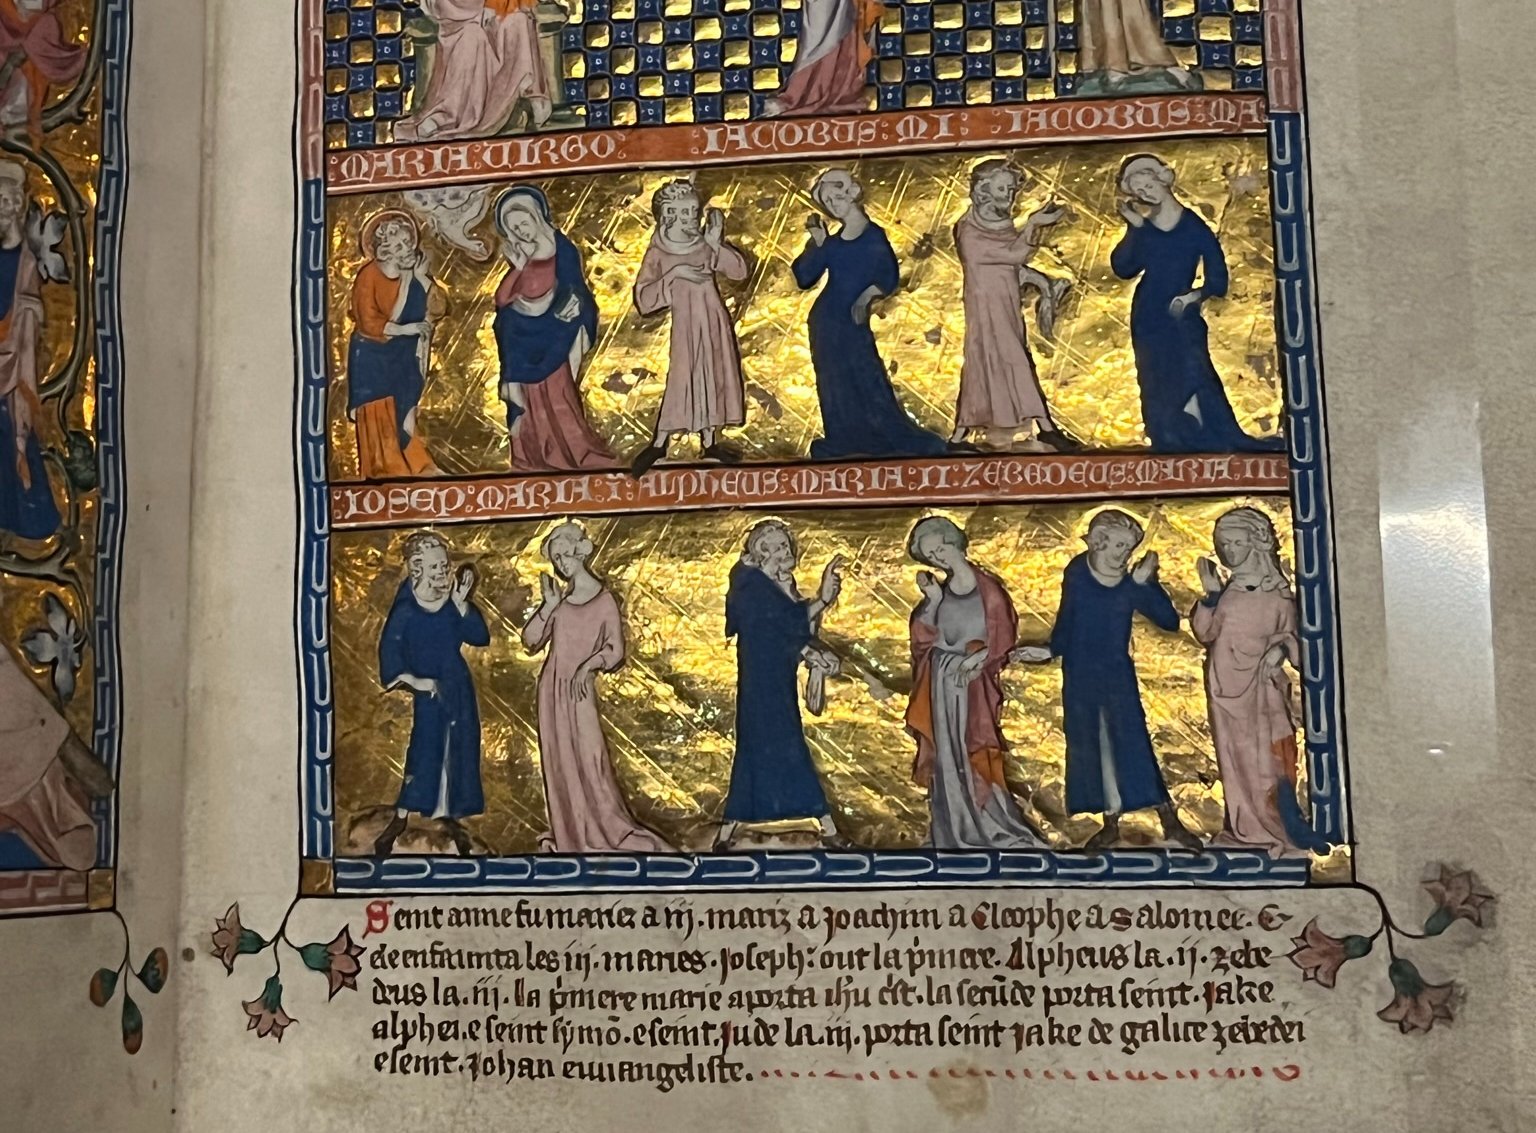 :MARIA:UIRGO: :IACOBUS: MI: :IACOBUS: MA
:IOSEP:MARIA:I:ALPHEUS:MARIA:II:ZEBEDEUS:MARIA:III
Seint anne fu mariez a iij. mariz a Joachim a Cleophe a Salomee. E
de enfaunta les iij. maries. Joseph: out la p'mere. Alpheus la .ij. zebe
deus la .iij. la p'mere marie aporta ih'u c'st. la secūde porta seint. Jake
alphei. e seint symō. e seint. Jude la .iij. porta seint Jake de galice zebedei
e seint. Johan ewangeliste.